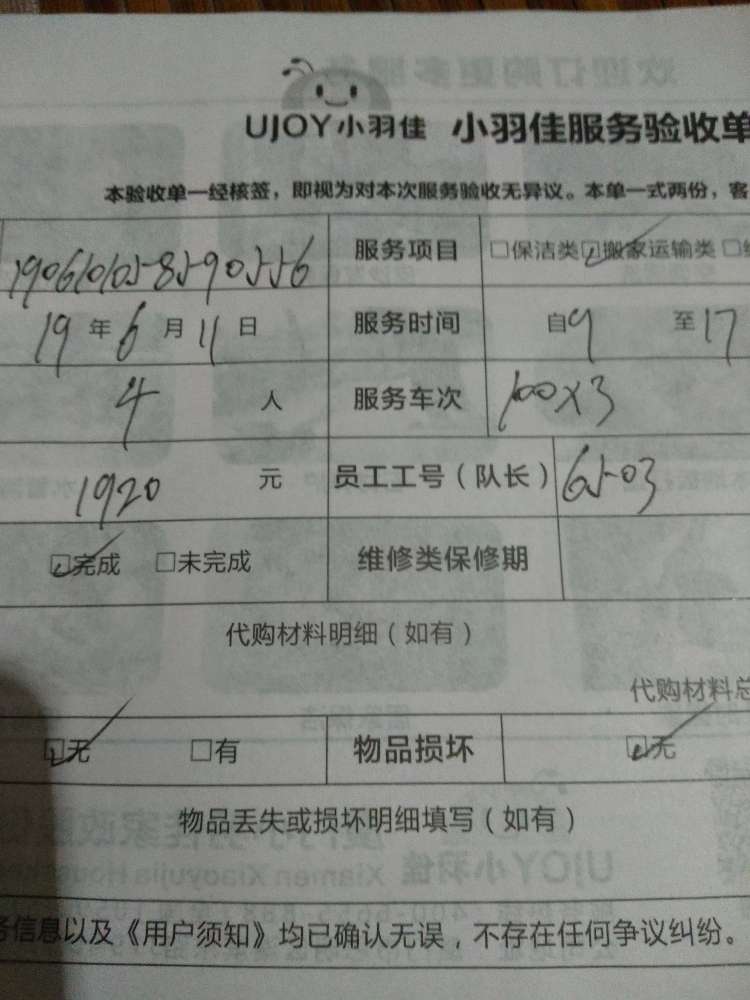 UJOY小羽佳 小羽佳服务验收单
本验收单一经核签，即视为对本次服务验收无异议。本单一式两份，客
服务项目 □保洁类☑搬家运输类□
19年6月11日 服务时间 自9 至17
4 人 服务车次 100×3
1920 元 员工工号（队长） 6503
☑完成 □未完成 维修类保修期
代购材料明细（如有）
代购材料总
☑无 □有 物品损坏 ☑无
物品丢失或损坏明细填写（如有）
务信息以及《用户须知》均已确认无误，不存在任何争议纠纷。